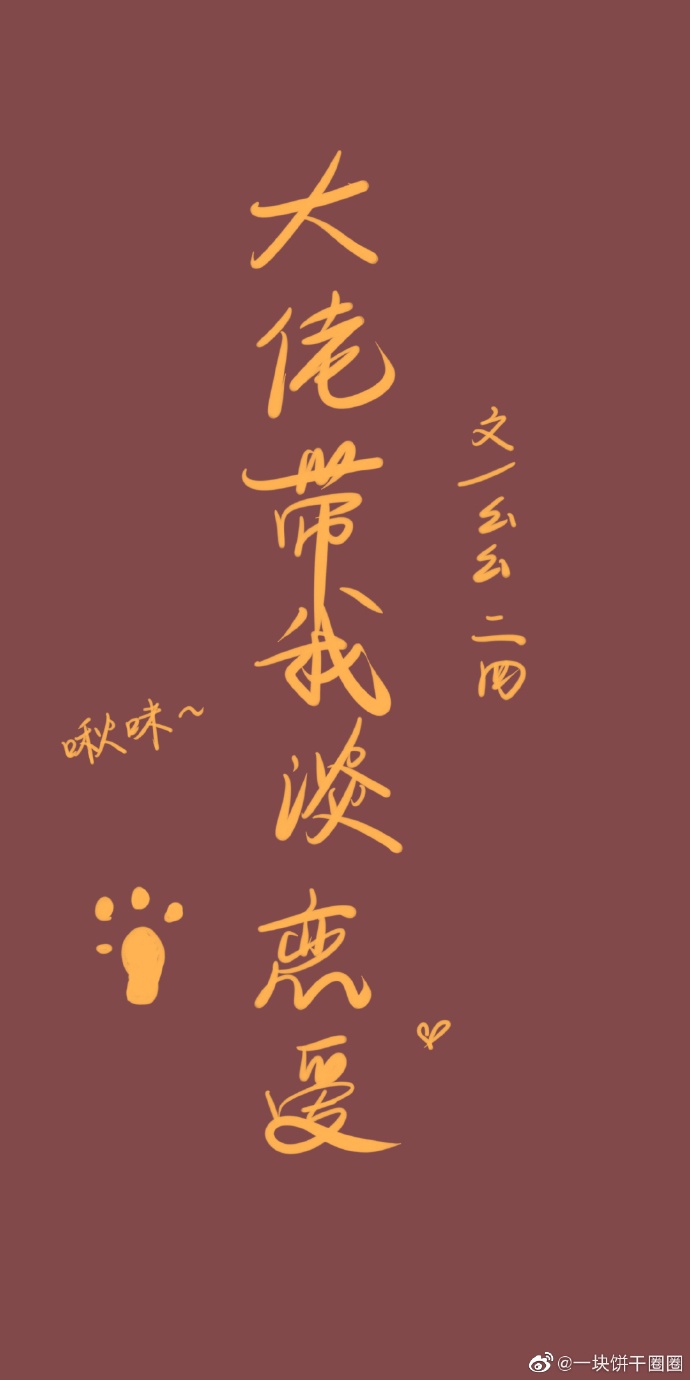 大佬带我谈恋爱
文/幺幺二四
啾咪~
@一块饼干圈圈